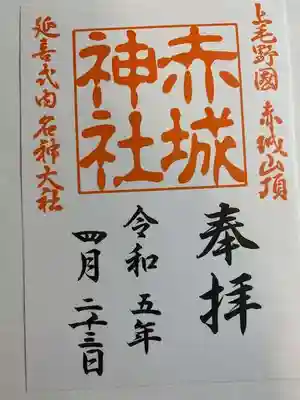 上毛野國 赤城山頂
赤城
神社
延喜式内 名神大社
奉拝
令和五年
四月二十三日